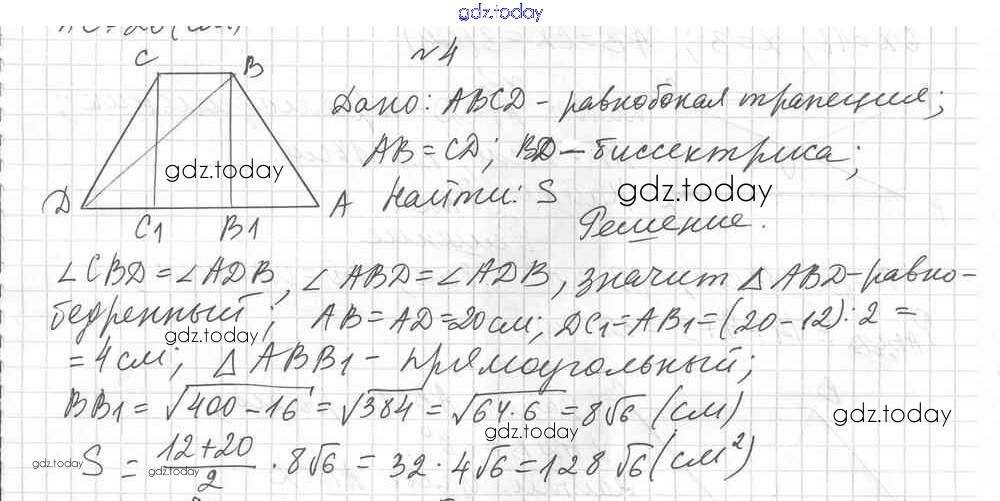 gdz.today
№4
C B
Дано: ABCD - равнобокая трапеция;
AB = CD; BD - биссектриса;
gdz.today
D A Найти: S gdz.today
C1 B1 Решение.
∠CBD = ∠ADB, ∠ABD = ∠ADB, значит △ABD - равно-
бедренный; AB = AD = 20 см; DC1 = AB1 = (20 - 12) : 2 =
gdz.today
= 4 см; △ABB1 - прямоугольный;
BB1 = √400 - 16 = √384 = √64·6 = 8√6 (см)
gdz.today gdz.today
S = 12 + 20 / 2 · 8√6 = 32 · 4√6 = 128√6 (см²)
gdz.today gdz.today